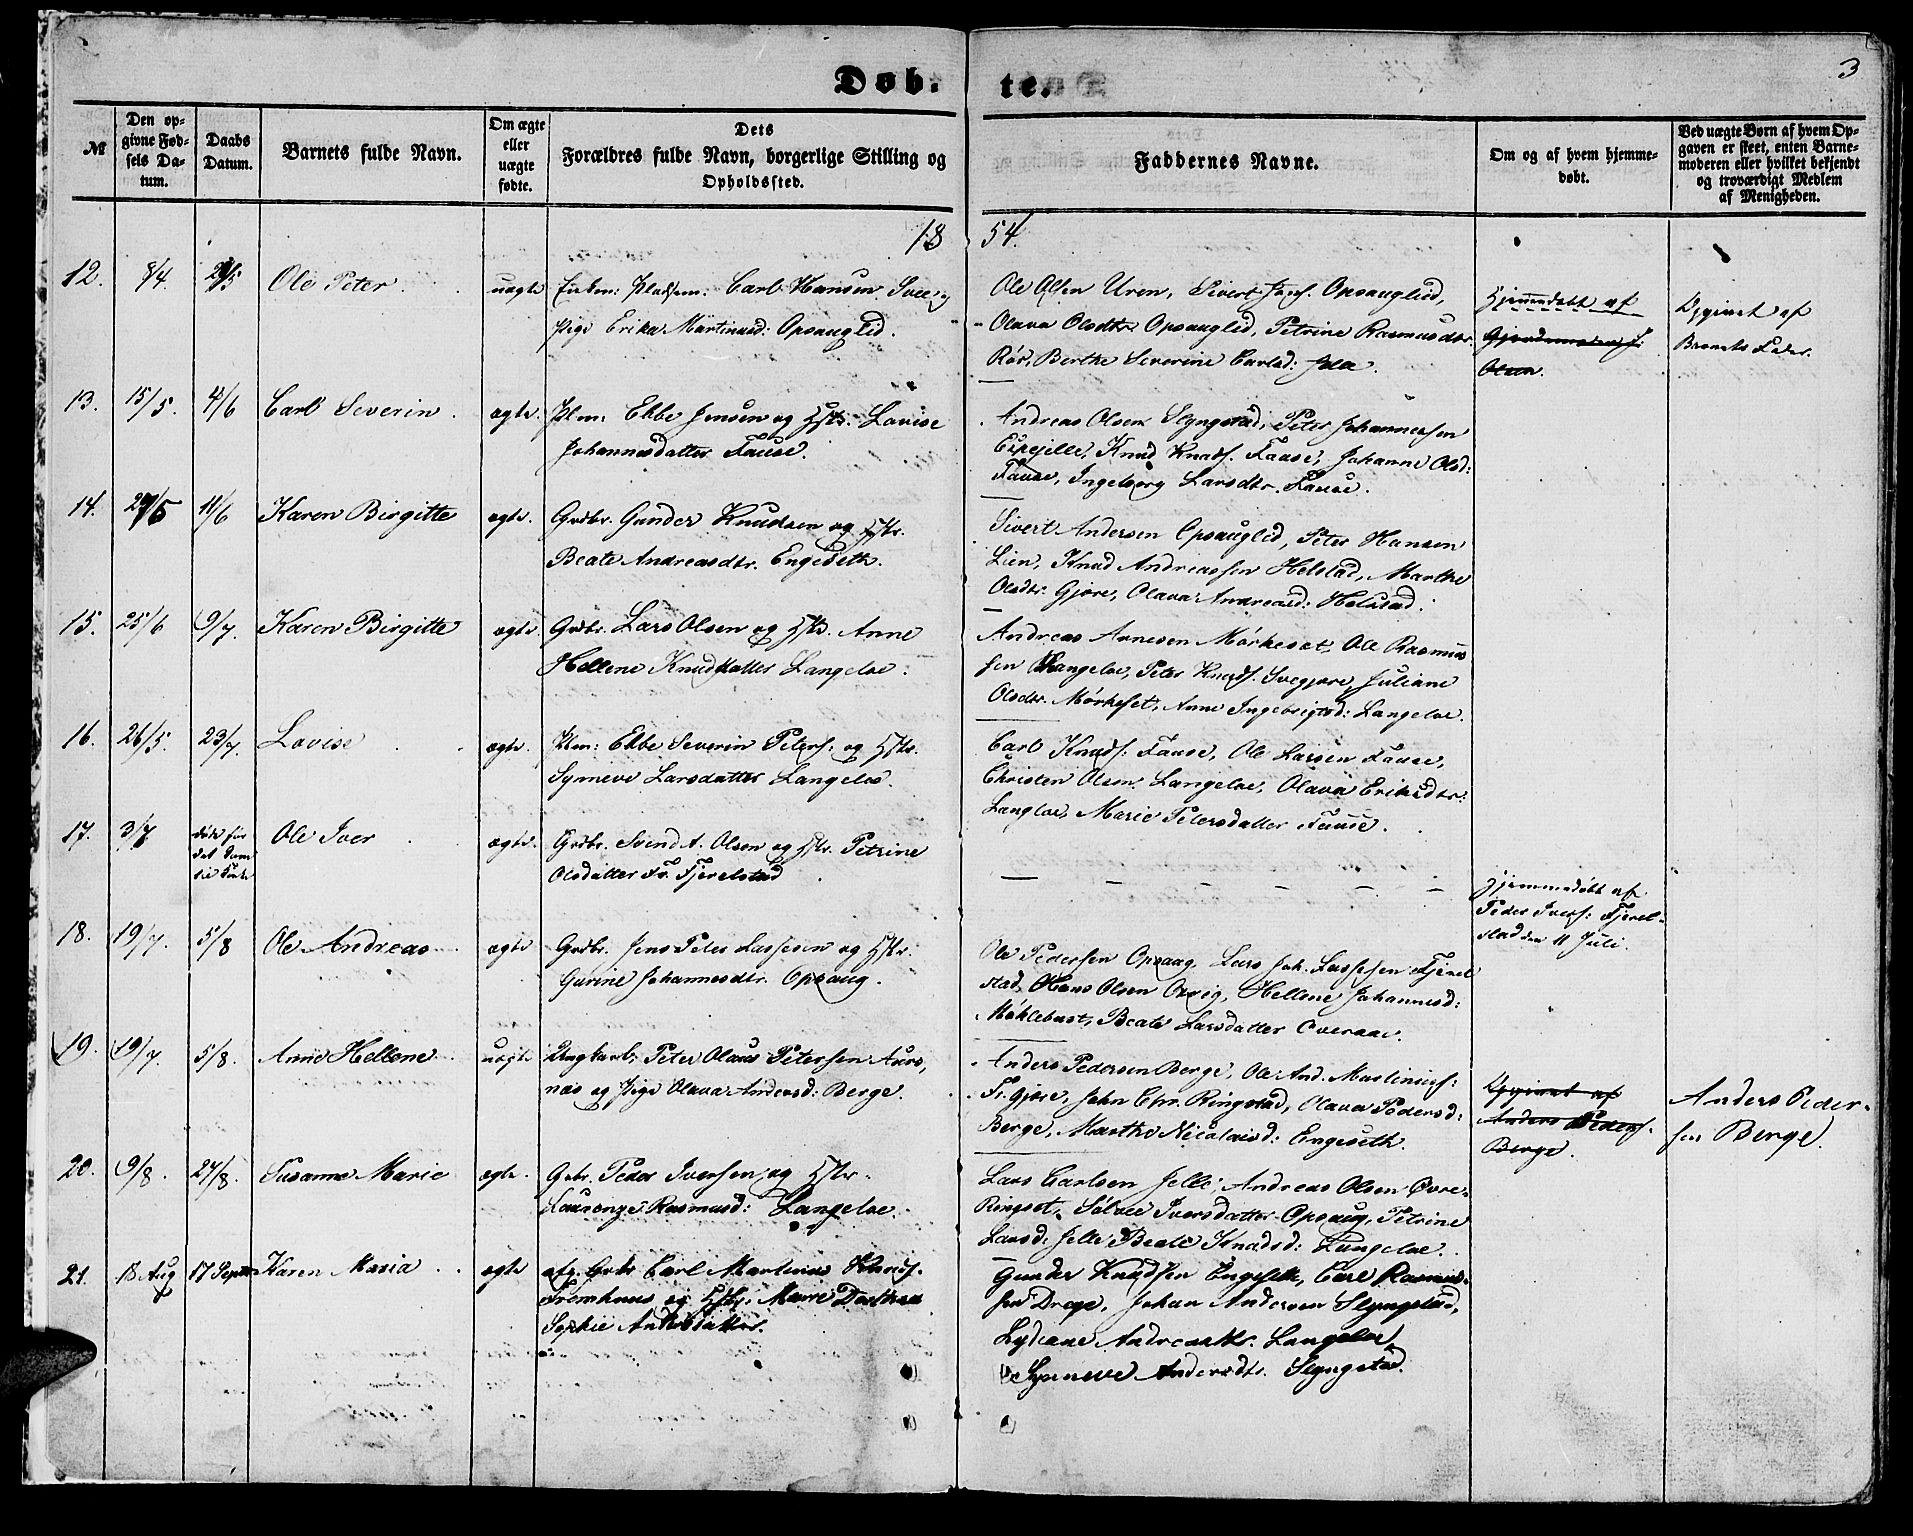 Døb- te.
3
№
Den op-
givne Fød-
sels Da-
tum.
Daabs
Datum.
Barnets fulde Navn.
Om ægte
eller
uægte
fødte.
Dets
Forældres fulde Navn, borgerlige Stilling og
Opholdssted.
Faddernes Navne.
Om og af hvem hjemme-
døbt.
Ved uægte Børn af hvem Op-
gaven er skeet, enten Barne-
moderen eller hvilket bekjendt
og troværdigt Medlem
af Menigheden.
18 54.
12. 8/4. Ole Peter uægte Carl Hansen
Pige Erika Martinusd: Opsauglid.
Ole Olsen Uren, Sivert Opsauglid,
Olava Olsdtr Opsauglid, Petrine Rasmusdtr.
Rør, Berthe Severine Carlsd:
Hjemmedøbt af
Olsen.
Opgivet af
Barnets Fader.
13. 15/5. 4/6 Carl Severin ægte. Plm: Ebbe Jensen og Hstr. Lovise
Johannesdatter Fause.
Andreas Olsen Slyngstad, Peter Johannessen
Knud Knuds. Fause, Johanne Olsd:
Fause, Ingeborg Larsdtr. Fause.
14. 11/6 Karen Birgitte ægte. Grdbr. Gunder Knudsen og Hstr.
Beate Andreasdtr. Engeseth.
Sivert Andersen Opsauglid, Peter Hansen
Lien, Knud Andreassen Helstad, Marthe
Olsdtr. Gjøre, Olava Andreasd: Helstad.
15. 25/6 9/7. Karen Birgitte ægte Grdbr. Lars Olsen og Hstr. Anne
Hellene Knudsdatter Langeloe.
Andreas Arnesen Mørkeset, Ole Rasmus
sen Langeloe, Peter Knuds. Svegjøre, Juliane
Olsdtr. Mørkeset, Anne Ingebrigtsd: Langeloe.
16. 26/5. 23/7. Lovise ægte. Plm: Ebbe Severin Peters: og Hstr.
Synneve Larsdatter Langeloe.
Carl Knuds: Fause, Ole Larsen Fause,
Christen Olsen Langeloe, Olava Eriksdtr.
Langloe, Marie Petersdatter Fause.
17. 3/7 døde før
Ole Iver ægte. Grdbr. Svend A. Olsen og Hstr. Petrine
Olsdatter Fr. Fjerelstad
Hjemmedøbt af
Peder Ivers: Fjerel-
stad den 11 Juli.
18. 19/7. 5/8 Ole Andreas ægte Grdbr. Jens Peter Lassesen og Hstr.
Gurine Johannesdtr. Opsaug.
Ole Pedersen Opsaug, Lars Joh. Lassesen Fjerel
stad, Hans Olsen Opsig, Hellene Johannesd:
Møklebust, Beate Larsdatter Overaae.
19. 19/7. 5/8. Anne Hellene uægte Ungkarl. Peter Olaus Petersen Aurs,
næs og Pige Olava Andersd: Berge.
Anders Pedersen Berge, Ole And. Martinius:
Fr. Gjøre, John Chr. Ringstad, Olava Pedersd:
Berge, Marthe Nicolaisd: Engeseth.
Opgivet af
Anders Peders.
Berge.
Anders Peder-
sen Berge.
20. 9/8. 27/8. Susanne Marie ægte. Grbr. Peder Iversen og Hstr.
Laurenze Rasmusd: Langeloe.
Lars Carlsen Jelle, Andreas Olsen Øvre-
Ringset, Sølvie Iversdatter Opsaug, Petrine
Larsd: Jelle Beate Knudsd: Langeloe.
21. 18 Aug 17 Septr Karen Maria ægte afg. Grbr Carl Martinus Knuds.
og Hstr. Marie Dorthea
Sophie Andersdatter.
Gunder Knudsen Engeseth, Carl Rasmus-
sen Drage, Johan Andersen Slyngstad,
Lydiane Andreasdtr. Langeloe,
Synneve Andersdtr. Slyngstad.